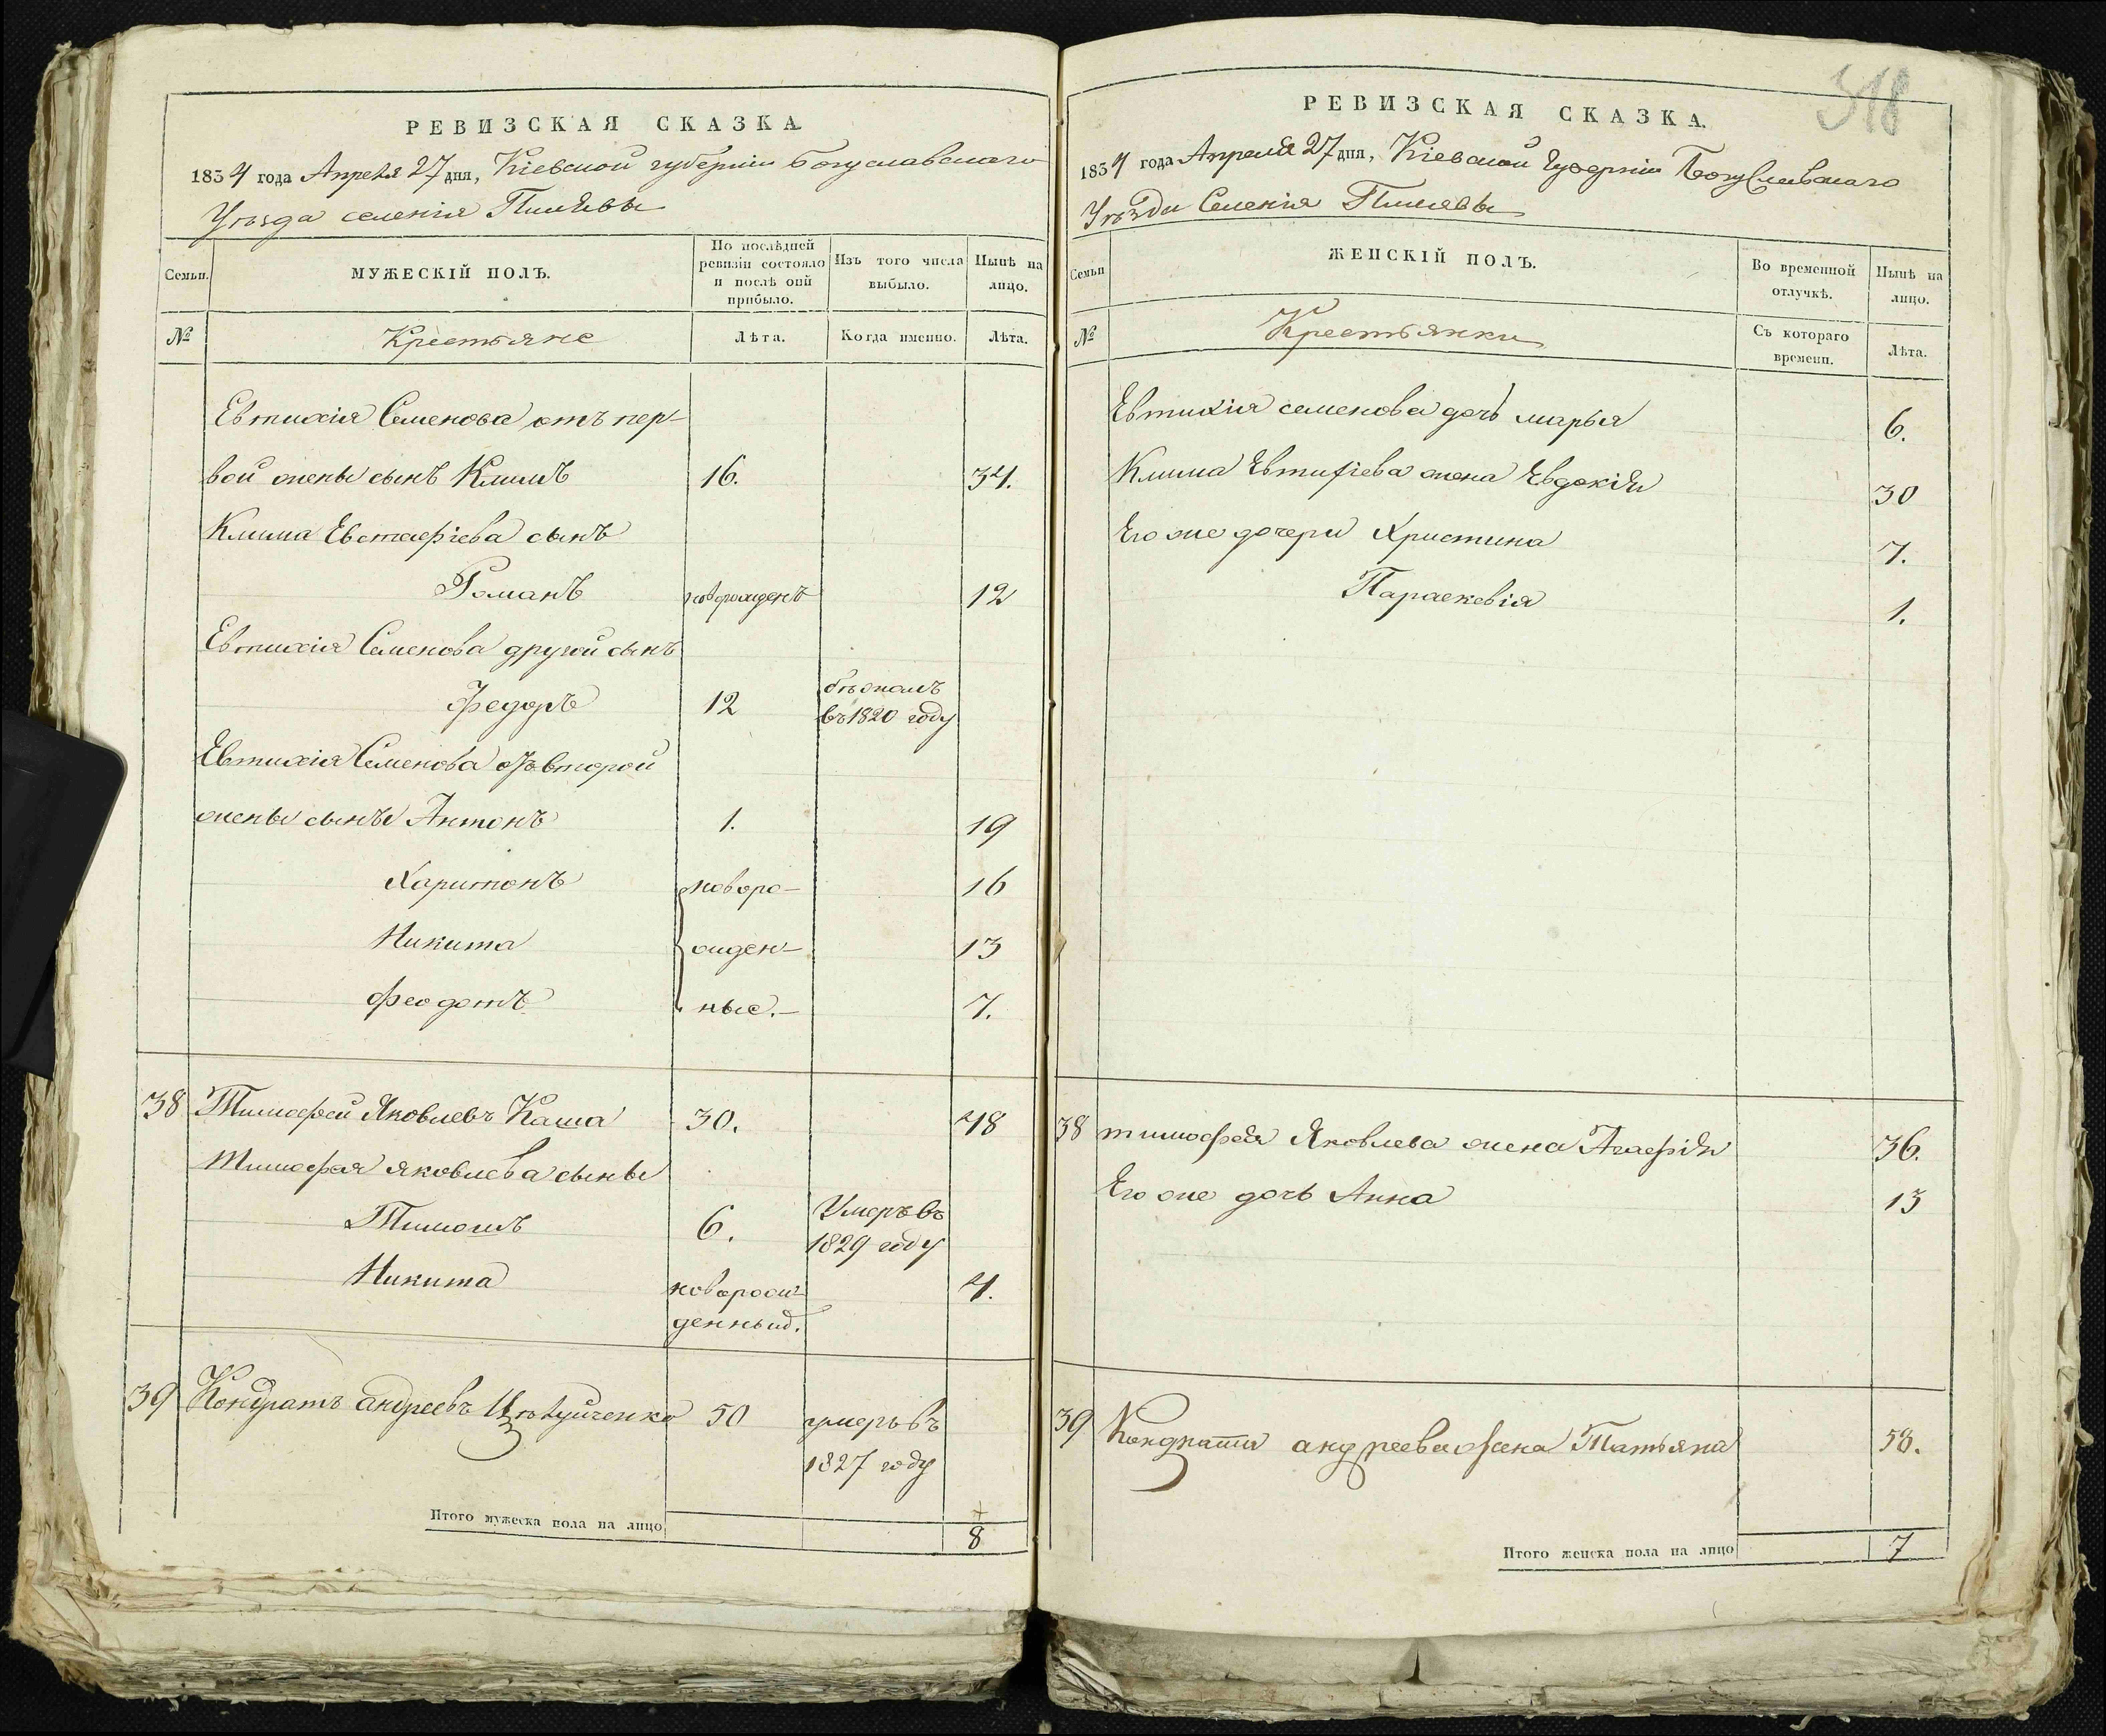 РЕВИЗСКАЯ СКАЗКА.
1834 года Апреля 27 дня, Кіевской губерніи Богуславскаго
Уѣзда селенія Пилявы
Семьи.
МУЖЕСКІЙ ПОЛЪ.
По послѣдней ревизіи состояло и послѣ оной прибыло.
Изъ того числа выбыло.
Нынѣ на лицо.
№
Крестьяне
Лѣта.
Когда именно.
Лѣта.
Евтихія Семенова отъ пер-
вой жены сынъ Климъ 16. 34.
Клима Евстафіева сынъ
Романъ новорожденъ 12
Евтихія Семенова другой сынъ
Федоръ 12 бѣжалъ въ 1820 году
Евтихія Семенова отъ второй
жены сыны Антонъ 1. 19
Харитонъ новоро- 16
Никита жден- 13
Феодотъ ные. 7.
38 Тимофей Яковлевъ Каша 30. 48
Тимофея Яковлева сыны
Тимошъ 6. Умеръ въ 1829 году
Никита новорож-
денный. 4.
39 Кондратъ Андреевъ 50 умеръ въ
1827 году
Итого мужеска пола на лицо 8
318
РЕВИЗСКАЯ СКАЗКА.
1834 года Апреля 27 дня, Кіевской Губерніи Богуславскаго
Уѣзда Селенія Пилявы
Семьи
ЖЕНСКІЙ ПОЛЪ.
Во временной отлучкѣ.
Нынѣ на лицо.
№
Крестьянки
Съ котораго времени.
Лѣта.
Евтихія семенова дочь марья 6.
Клима Евтифіева жена Евдокія 30
Его же дочери Христина 7.
Параскевія 1.
38 тимофея Яковлева жена Агафія 36.
Его же дочь Анна 13
39 Кондрата андреева жена Татьяна 58.
Итого женска пола на лицо 7